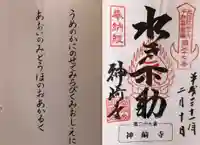 平成二十一年
二月十日
水不動
奉納経
神崎寺
第二十九番
神崎寺
うめのかにのせてみちびくみおしえに
あおいのみどうほのおあかるく